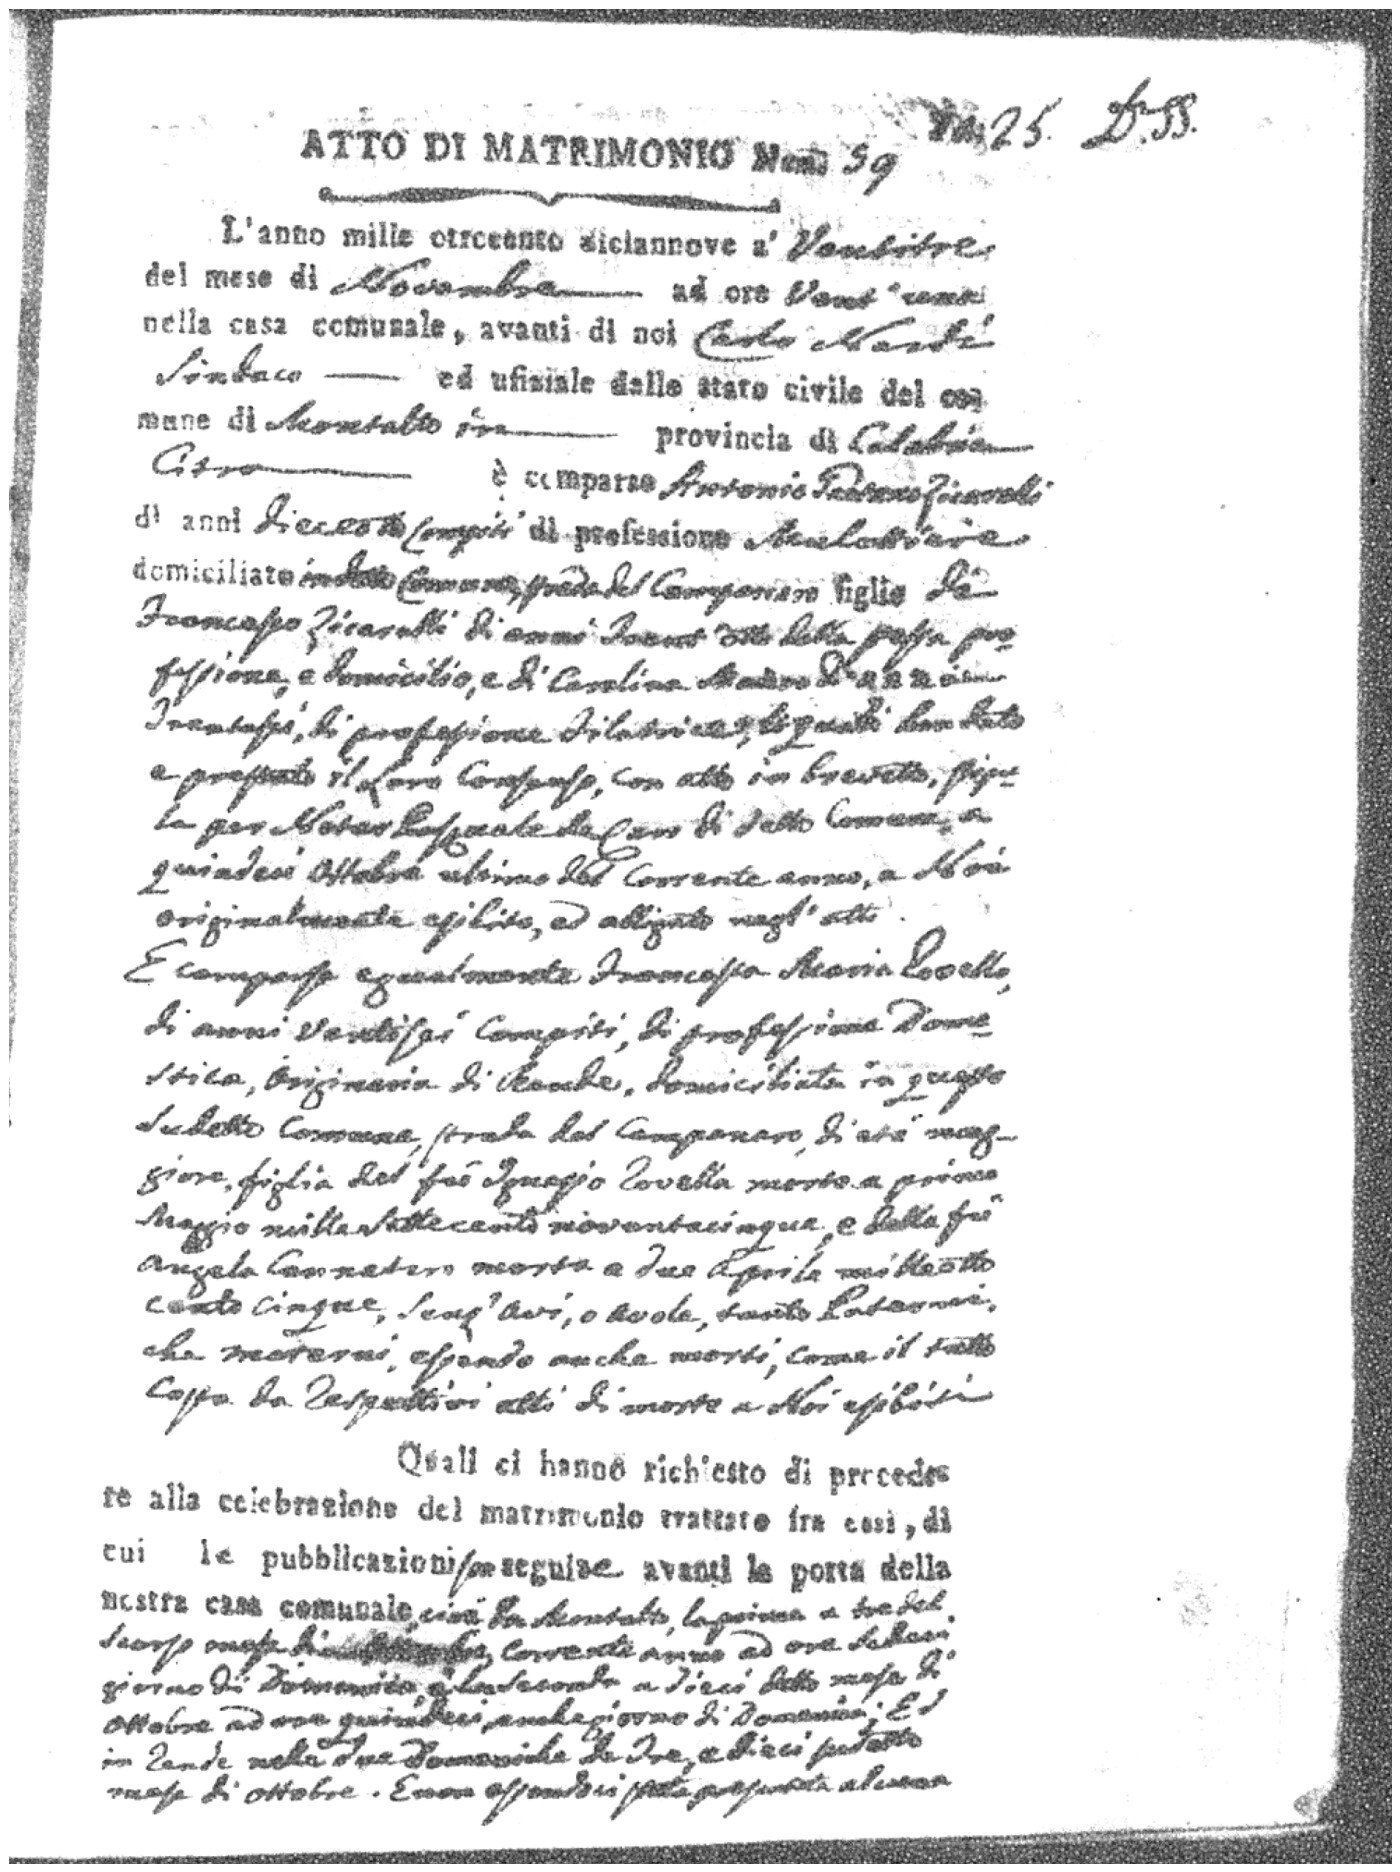 25. D. SS.
ATTO DI MATRIMONIO Num. 59
L'anno mille ottocento diciannove a' Ventitre
del mese di Novembre ad ore Vent'una
nella casa comunale, avanti di noi Carlo Nardi
Sindaco ed ufiziale dello stato civile del co-
mune di Montalto in provincia di Calabria
Citra è comparso Antonio Zicarelli
di anni dieceotto compiti di professione Mulattiere
domiciliato in detto Comune, strada del Campanaro figlio di
Francesco Zicarelli di anni Trent'otto della stessa pro-
fessione, e domicilio, e di Carolina d'anni
Trentasei, di professione Filatrice, li quali han dato
e prestato il loro Consenso, con atto in brevetto, stipu-
la per Notar Pasquale de Caro di detto Comune, a
quindeci Ottobre ultimo del corrente anno, a Noi
originalmente esibito, ed alligato negl'atti.
E comparsa egualmente Francesca Maria Rovella,
di anni Ventisei compiti, di professione Dome-
stica, originaria di Rende, domiciliata in questo
sudetto Comune, strada del Campanaro, di età mag-
giore, figlia del fù Ignazio Rovella morto a primo
Maggio mille settecento novantacinque, e della fù
Angela Cannataro morta a due Aprile mille otto
cento cinque, senz'avi, o avole, tanto Paterni,
che materni, essendo anche morti, come il tutto
costa da respettivi atti di morte a Noi esibiti
Quali ci hanno richiesto di procede-
re alla celebrazione del matrimonio trattato fra essi, di
cui le pubblicazioni son seguite avanti la porta della
nostra casa comunale, cioè in Montalto, la prima a tre del
scorso mese di Ottobre, corrente anno ad ore sedeci
giorno di Domenica, e la seconda a dieci detto mese di
Ottobre ad ore quindeci, anche giorno di Domenica; Ed
in Rende nelle due Domeniche de tre, e dieci sudetto
mese di ottobre. E non essendoci stata presentata alcuna